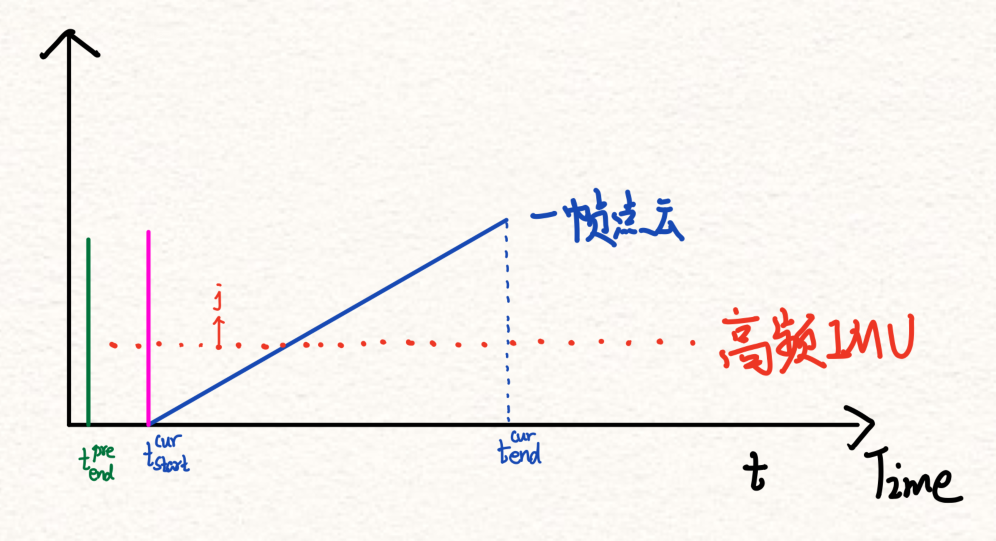 一帧点云
j
高频IMU
t_end^pre
t_start^cur
t_end^cur
t
Time